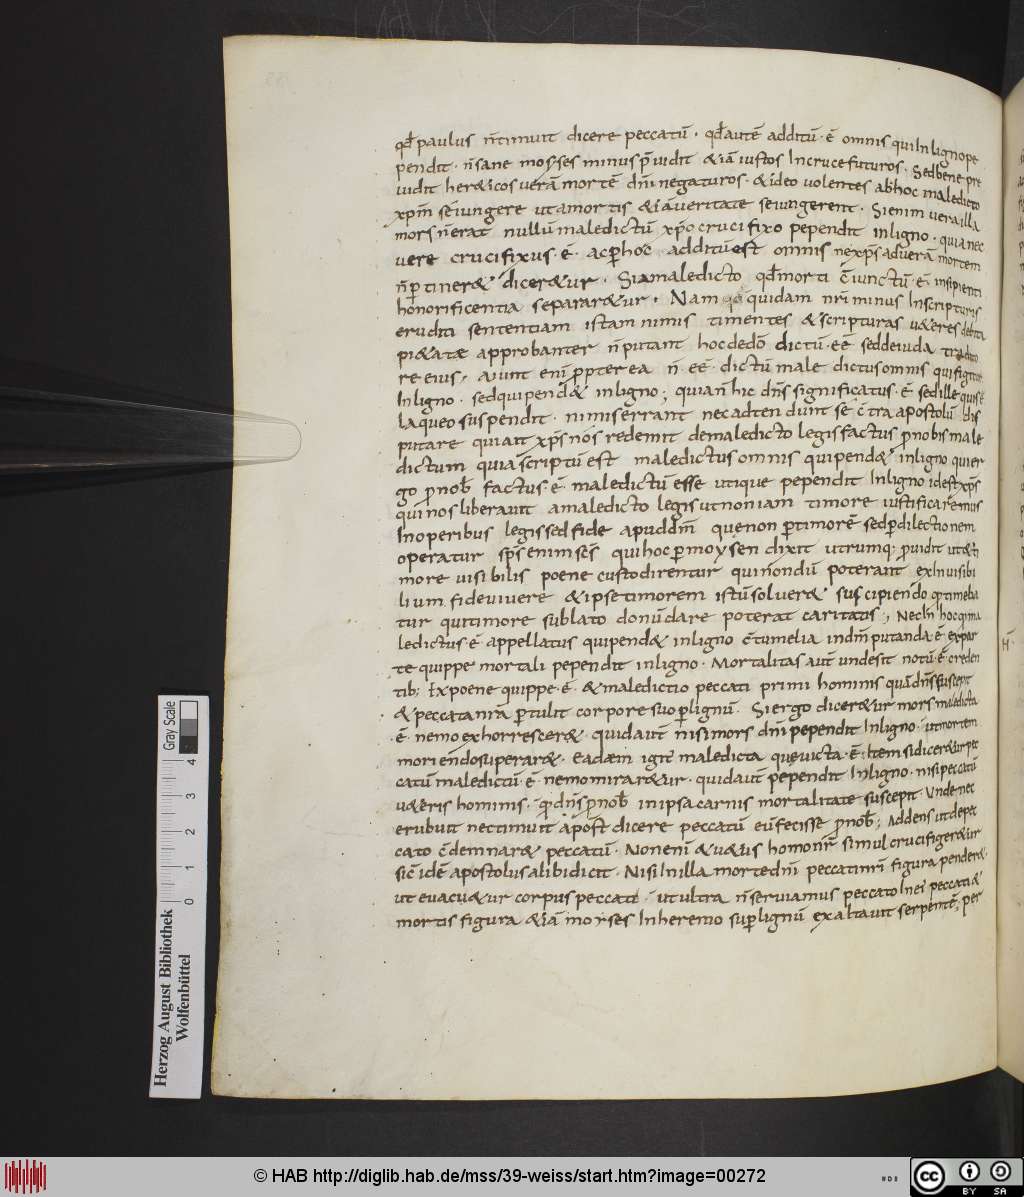 qđ paulus n̄ timuit dicere peccatū · qđ autē additū · ē omnis qui In ligno pe
pendit · n̄ sane moyses minus p̄uidit & iā iustos In cruce futuros · Sed bene pre
uidit her&icos verā mortē dn̄i negaturos · & ideo volentes ab hoc maledicto
xpm̄ seiungere ut a mortis &iā veritate seiungerent · Si enim uera illa
mors n̄ erat nullū maledictū xp̄o crucifixo pependit in ligno · quia nec
vere crucifixus · ē · ac p̄ hoc additū est omnis ne xp̄s ad verā mortem
n̄ ptiner& dicer&ur · Si a maledicto qđ morti c̄iunctū · ē insipienti
honorificentia separar&ur · Nam quidam nr̄i minus In scripturis
eruditi sententiam istam nimis timentes & scripturas u&eres debita
pi&ate approbantes n̄ putant hoc de dōo dictū · eē sed de iuda traditore
re eius · aiunt enī ppterea n̄ · eē · dictū male dictus omnis qui figitur
In ligno · sed qui pend& in ligno ; quia n̄ hic dn̄s significatus · ē sed ille qui sē
laqueo suspendit · nimis errant nec adtendunt se c̄tra apostolū dis
putare qui ait xp̄s nos redemit de maledicto legis factus p nobis male
dictum quia scriptū est maledictus omnis qui pend& in ligno qui er
go p nob̄ factus · ē · maledictū esse utique pependit In ligno id est xp̄s
qui nos liberauit a maledicto legis ut non iam timore iustificaremus
In operibus legis sed fide apud dm̄ quę non p timorē sed p dilectionem
operatur sp̄s enim sc̄s qui hoc p moysen dixit utrumq; puidit ut & ti
more uisibilis poene custodirentur qui nondū poterant ex Inuisibi
lium fide vivere & ipse timorem istū soluer& suscipiendo qđ timeba
tur qui timore sublato donū dare poterat caritatis ; Nec In hoc qđ ma
ledictus · ē appellatus qui pend& in ligno c̄tumelia in dn̄m putanda · ē · ex par
te quippe mortali pependit in ligno · Mortalitas aut̄ unde sit notū · ē · creden
tib; Ex poena quippe · ē · & maledictio peccati primi hominis quā dn̄s suscepit
& peccata nr̄a ptulit corpore suo p lignū · Si ergo dicer&ur mors maledicta
· ē · nemo exhorrescer& · quid aut̄ n̄ si mors dn̄i pependit In ligno · ut mortem
moriendo superar& · Eadem igit̄ maledicta que uicta · ē · Item si dicer&ur pec
catū maledictū · ē · nemo mirar&ur · quid aut̄ pependit In ligno · nisi peccatū
u&eris hominis · qđ dn̄s p nob̄ in ipsa carnis mortalitate suscepit · Unde nec
erubuit nec timuit apost̄ dicere peccatū eū fecisse p nob̄ ; Addens ut de pec
cato c̄demnar& peccatū · Non enī & u&us homo nr̄ simul crucifiger&ur
sic̄ idē apostolus alibi dicit · Nisi In illa morte dn̄i peccati nr̄i figura pender& ·
ut euacu&ur corpus peccati · ut ultra n̄ seruiamus peccato In ei peccati &
mortis figura &iā moyses In heremo sup lignū exaltauit serpentē ; per
Herzog August Bibliothek
Wolfenbüttel
0 1 2 3 4
Gray Scale
© HAB http://diglib.hab.de/mss/39-weiss/start.htm?image=00272
cc BY SA